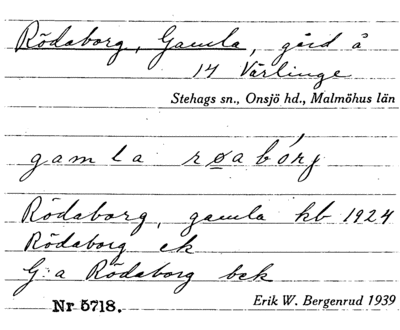 Rödaborg, Gamla, gård å
14 Värlinge
Stehags sn., Onsjö hd., Malmöhus län
gamla røabórj
Rödaborg, gamla hb 1924
Rödaborg ek
G:a Rödaborg bek
Nr 5718.
Erik W. Bergenrud 1939